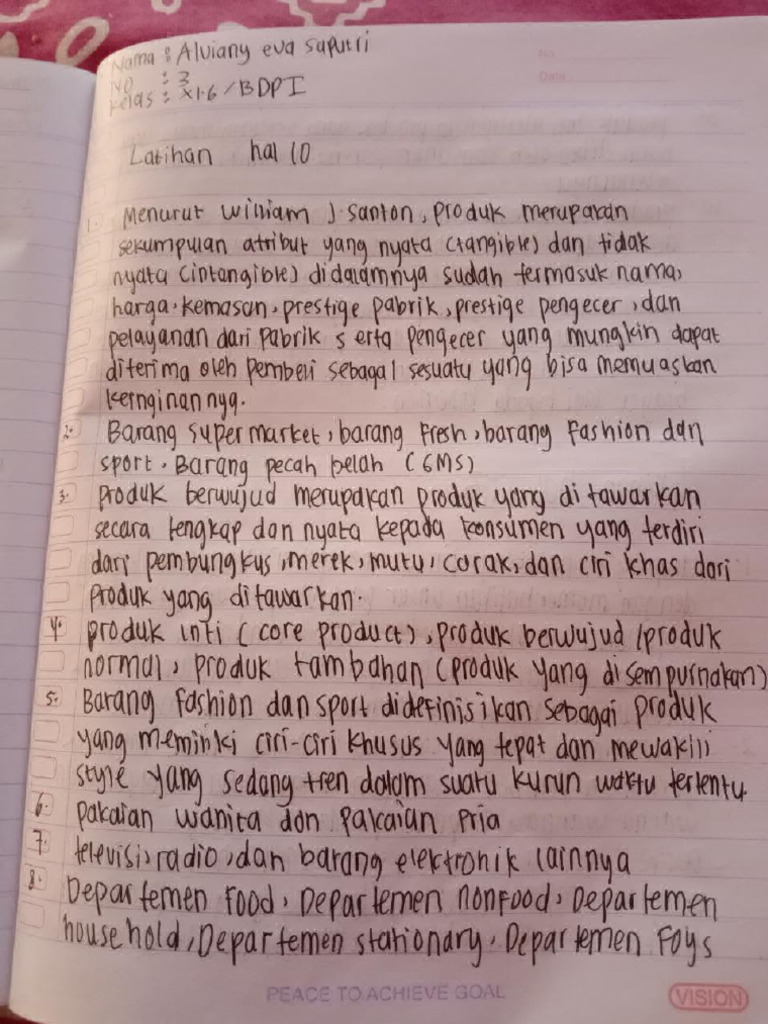 No
Date
Nama : Alviany eva saputri
NO : 3
kelas : XI.6 / BDPI
Latihan hal 10
1. Menurut william J. Santon, produk merupakan
sekumpulan atribut yang nyata (tangible) dan tidak
nyata (intangible) didalamnya sudah termasuk nama,
harga, kemasan, prestige pabrik, prestige pengecer, dan
pelayanan dari pabrik serta pengecer yang mungkin dapat
diterima oleh pembeli sebagai sesuatu yang bisa memuaskan
keinginannya.
2. Barang supermarket, barang fresh, barang fashion dan
sport, Barang pecah belah (GMS)
3. produk berwujud merupakan produk yang ditawarkan
secara lengkap dan nyata kepada konsumen yang terdiri
dari pembungkus, merek, mutu, corak, dan ciri khas dari
produk yang ditawarkan.
4. produk inti (core product), produk berwujud /produk
normal, produk tambahan (produk yang disempurnakan)
5. Barang fashion dan sport didefinisikan sebagai produk
yang memiliki ciri-ciri khusus yang tepat dan mewakili
style yang sedang tren dalam suatu kurun waktu tertentu.
6. pakaian wanita dan pakaian pria
7. televisi, radio, dan barang elektronik lainnya
8. Departemen food, Departemen nonfood, Departemen
household, Departemen stationary, Departemen Foys
PEACE TO ACHIEVE GOAL
VISION